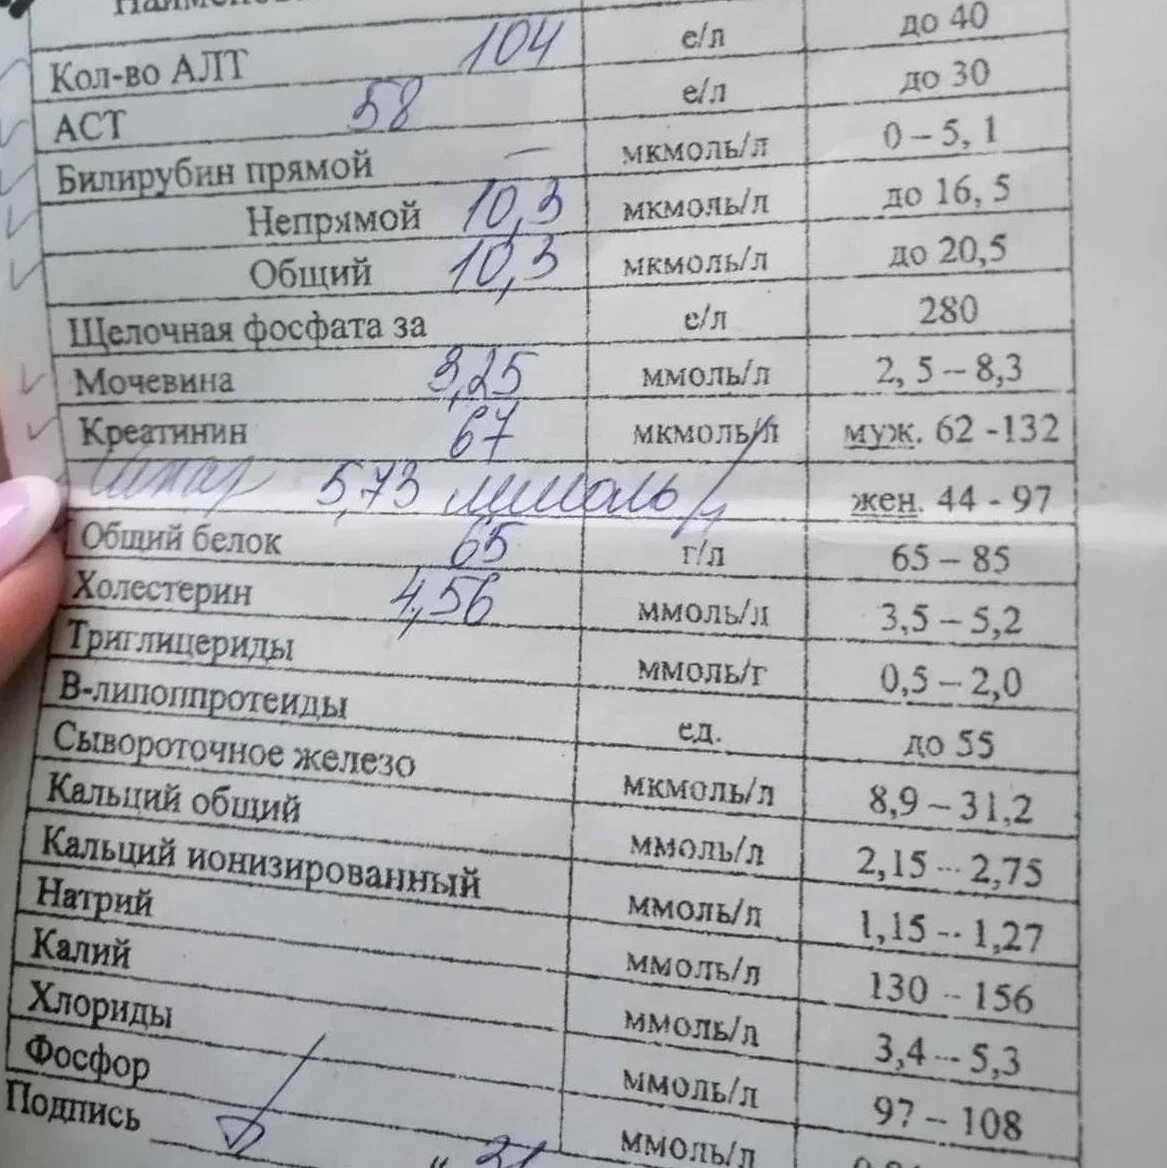 Кол-во АЛТ 104 е/л до 40
АСТ 58 е/л до 30
Билирубин прямой — мкмоль/л 0 – 5, 1
Непрямой 10,3 мкмоль/л до 16, 5
Общий 10,3 мкмоль/л до 20,5
Щелочная фосфата за е/л 280
Мочевина 3,25 ммоль/л 2, 5 – 8,3
Креатинин 67 мкмоль/л муж. 62 -132
Сахар 5,73 ммоль/л жен. 44 - 97
Общий белок 65 г/л 65 – 85
Холестерин 4,56 ммоль/л 3,5 – 5,2
Триглицериды ммоль/г 0,5 – 2,0
В-липоппротеиды ед. до 55
Сывороточное железо мкмоль/л 8,9 – 31,2
Кальций общий ммоль/л 2,15 – 2,75
Кальций ионизированный ммоль/л 1,15 – 1,27
Натрий ммоль/л 130 – 156
Калий ммоль/л 3,4 – 5,3
Хлориды ммоль/л 97 – 108
Фосфор ммоль/л
Подпись